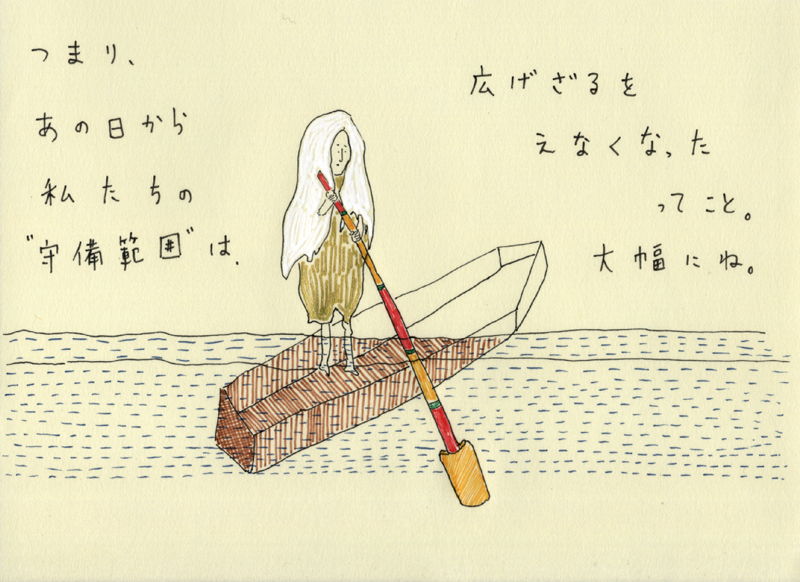 つまり、
あの日から
私たちの
"守備範囲"は、
広げざるを
えなくなった
ってこと。
大幅にね。